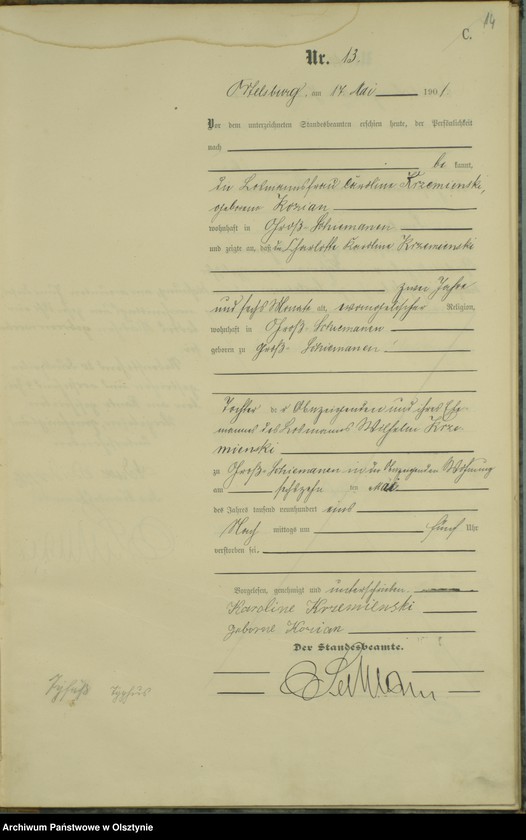 14
C.
Nr. 13.
Ortelsburg, am 17. Mai 1901
Vor dem unterzeichneten Standesbeamten erschien heute, der Persönlichkeit
nach
be kannt,
die Losmannsfrau Karoline Krzemienski,
geborene Kozian
wohnhaft in Groß-Schiemanen
und zeigte an, daß die Charlotte Karoline Krzemienski
zwei Jahre
und sechs Monate alt, evangelischer Religion,
wohnhaft in Groß-Schiemanen
geboren zu Groß-Schiemanen
Tochter der Anzeigenden und ihres Ehe-
mannes des Losmanns Wilhelm Krze-
mienski
zu Groß-Schiemanen in der Anzeigenden Wohnung
am sechzehn ten Mai
des Jahres tausend neunhundert eins
Nach mittags um fünf Uhr
verstorben sei.
Vorgelesen, genehmigt und unterschrieben
Karoline Krzemienski
geborne Kozian
Der Standesbeamte.
Typhus Typhus
Archiwum Państwowe w Olsztynie